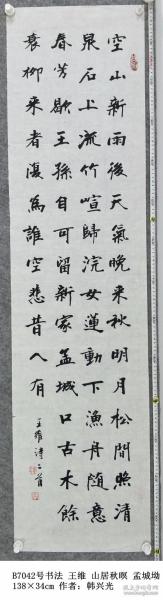 空山新雨後天氣晚来秋明月松間照清
泉石上流竹喧歸浣女蓮動下漁舟随意
春芳歇王孫自可留新家孟城口古木餘
衰柳来者復為誰空悲昔人有
王維詩二首
B7042号书法 王维 山居秋暝 孟城坳
138×34cm 作者：韩兴光